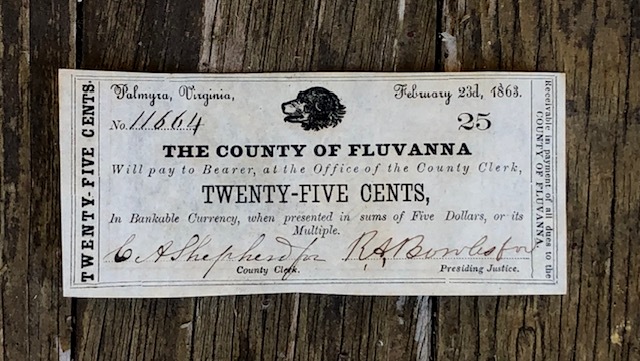 TWENTY-FIVE CENTS.
Palmyra, Virginia,
February 23d, 1863.
No. 11664
25
THE COUNTY OF FLUVANNA
Will pay to Bearer, at the Office of the County Clerk,
TWENTY-FIVE CENTS,
In Bankable Currency, when presented in sums of Five Dollars, or its
Multiple.
C A Shepherd for
R. A. Bowles for
County Clerk.
Presiding Justice.
Receivable in payment of all dues to the
COUNTY OF FLUVANNA.